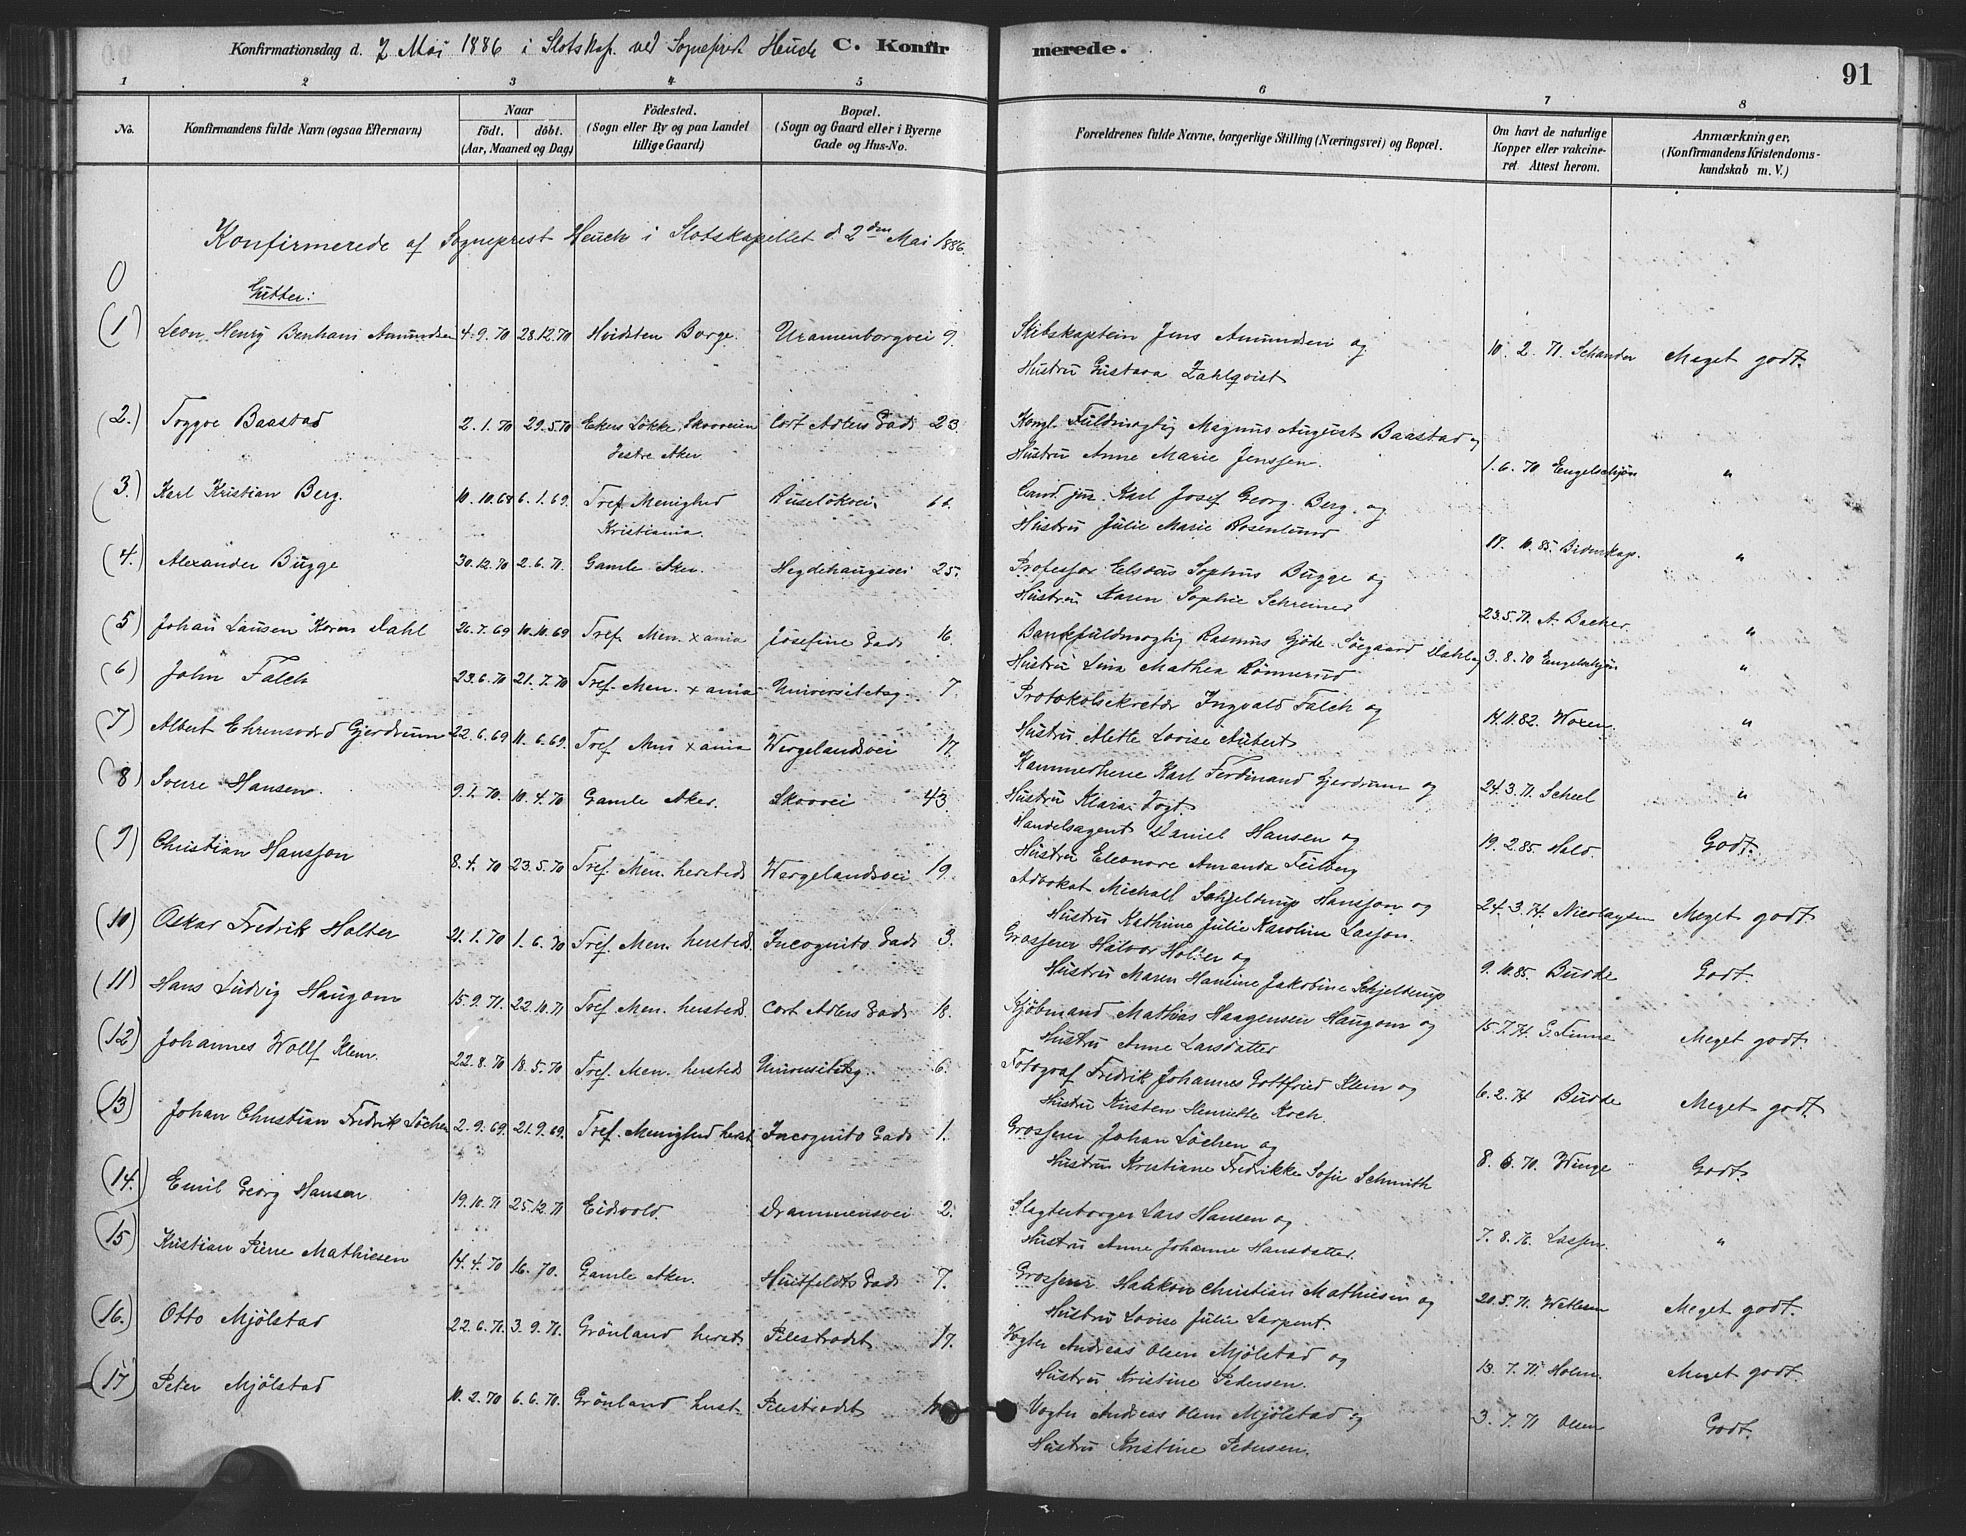 Konfirmationsdag d. 2 Mai 1886 i Slotskap. ved Sogneprest Heuch C. Konfirmerede.
91
1 2 3 4 5 6 7 8
No.
Konfirmandens fulde Navn (ogsaa Efternavn)
Naar
födt. döbt.
(Aar, Maaned og Dag)
Födested.
(Sogn eller By og paa Landet
tillige Gaard)
Bopæl.
(Sogn og Gaard eller i Byerne
Gade og Hus-No.
Forældrenes fulde Navne, borgerlige Stilling (Næringsvei) og Bopæl.
Om havt de naturlige
Kopper eller vakcine-
ret. Attest herom.
Anmærkninger,
(Konfirmandens Kristendoms-
kundskab m. V.)
Konfirmerede af Sogneprest Heuch i Slotskapellet d. 2den Mai 1886.
Gutter:
(1) Leon Henry Benham Amundsen 4.9.70 28.12.70 Hvidsten Borge. Uranienborgvei 9. Skibskaptein Jens Amundsen og
Hustru Gustava Zahlqvist 10.2.71. Schander Meget godt.
(2.) Trygve Baastad 2.1.70 29.5.70 Ekers Løkke, Skovveien Cort Adlers Gade 23. Kongl. Fuldmægtig Magnus August Baastad og
Vestre Aker Hustru Anne Marie Jenssen. 1.6.70 Engelschjøn "
(3.) Karl Kristian Berg. 10.10.68 6.1.69. Tref. Menighed Ruseløkvei. 66. Cand. jur. Karl Josef Georg Berg, og
Kristiania. Hustru Julie Marie Rosenlund 17.10.85. Bidenskap. "
(4.) Alexander Bugge 30.12.70 2.6.71. Gamle Aker. Hegdehaugsvei 25. Professor Elseus Sophus Bugge og
Hustru Karen Sophie Schreiner 23.5.71. A. Backer. "
(5) Johan Lausen Koren Dahl 26.7.69 10.10.69 Tref. Men. Xania Josefine Gade 16. Bankfuldmægtig Rasmus Gjøde Søegaard Dahl og
Hustru Lina Mathea Rønnerud 3.8.70 Engelschjøn "
(6) John Falch 23.6.70 21.7.70 Tref. Men. Xania Universitetsg. 7. Protokolsekretær Ingvald Falch og
Hustru Alette Lovise Aubert 14.11.82. Woxen "
(7) Albert Ehrensvärd Gjerdrum 22.6.69 11.6.69. Tref. Men Xania Wergelandsvei 17. Kammerherre Karl Ferdinand Gjerdrum og
Hustru Klara Vogt 24.3.71. Scheel "
(8) Sverre Hansen. 9.1.70. 10.4.70 Gamle Aker. Skovvei 43. Handelsagent Daniel Hansen og
Hustru Eleonore Amanda Feilberg 19.2.85. Hald. Godt.
(9) Christian Hansson 8.4.70 23.5.70 Tref. Men. hersteds Wergelandsvei 19. Advokat Michall Schjelderup Hansson og
Hustru Kathinne Julie Karoline Lasson. 24.3.74. Nicolaysen Meget godt
(10) Oskar Fredrik Holter 21.1.70 1.6.70 Tref. Men. hersteds. Incognito Gade 3. Grosserer Halvor Holter og
Hustru Maren Hansine Jakobine Schjelderup 9.10.85. Budde Godt.
(11) Hans Ludvig Haugom 15.9.71. 22.10.71 Tref. Men. hersteds. Cort Adlers Gade 18. Kjøbmand Mathias Haagensen Haugom og
Hustru Anne Larsdatter 15.7.74 G. Finne Meget godt.
(12) Johannes Wolff Klem. 22.8.70 18.5.70 Tref. Men. hersteds Universitetsg. 6. Fotograf Fredrik Johannes Gottfried Klem og
Hustru Kirsten Henriette Koch. 6.2.74 Budde Meget godt
(13) Johan Christian Fredrik Løchen 2.9.69. 21.9.69. Tref. Menighed herst. Incognito Gade 1. Grosserer Johan Løchen og
Hustru Kristiane Fredrikke Sofie Schmith 8.6.70. Winge Godt.
(14.) Emil Georg Hansen 19.10.71 25.12.71 Eidsvold. Drammensvei 2. Slagterborger Lars Hansen og
Hustru Anne Johanne Hansdatter. 7.8.76. Lassen. "
(15) Kristian Pierre Mathiesen 14.4.70 16. 70. Gamle Aker. Huitfeldts Gade 7. Grosserer Haakon Christian Mathiesen og
Hustru Lovise Julie Sarpent. 20.5.71. Wetlesen Meget godt.
(16.) Otto Mjølstad 22.6.71. 3.9.71. Grønland herst. Pilestrædet 17. Vogter Andreas Olsen Mjølstad og
Hustru Kristine Pedersen. 13.7.71 Holm. Meget godt.
(17) Peter Mjølstad 11.2.70 6.6.70. Grønland herst. Pilestrædet Vogter Andreas Olsen Mjølstad og
Hustru Kristine Pedersen. 3.7.71 Olsen Godt.